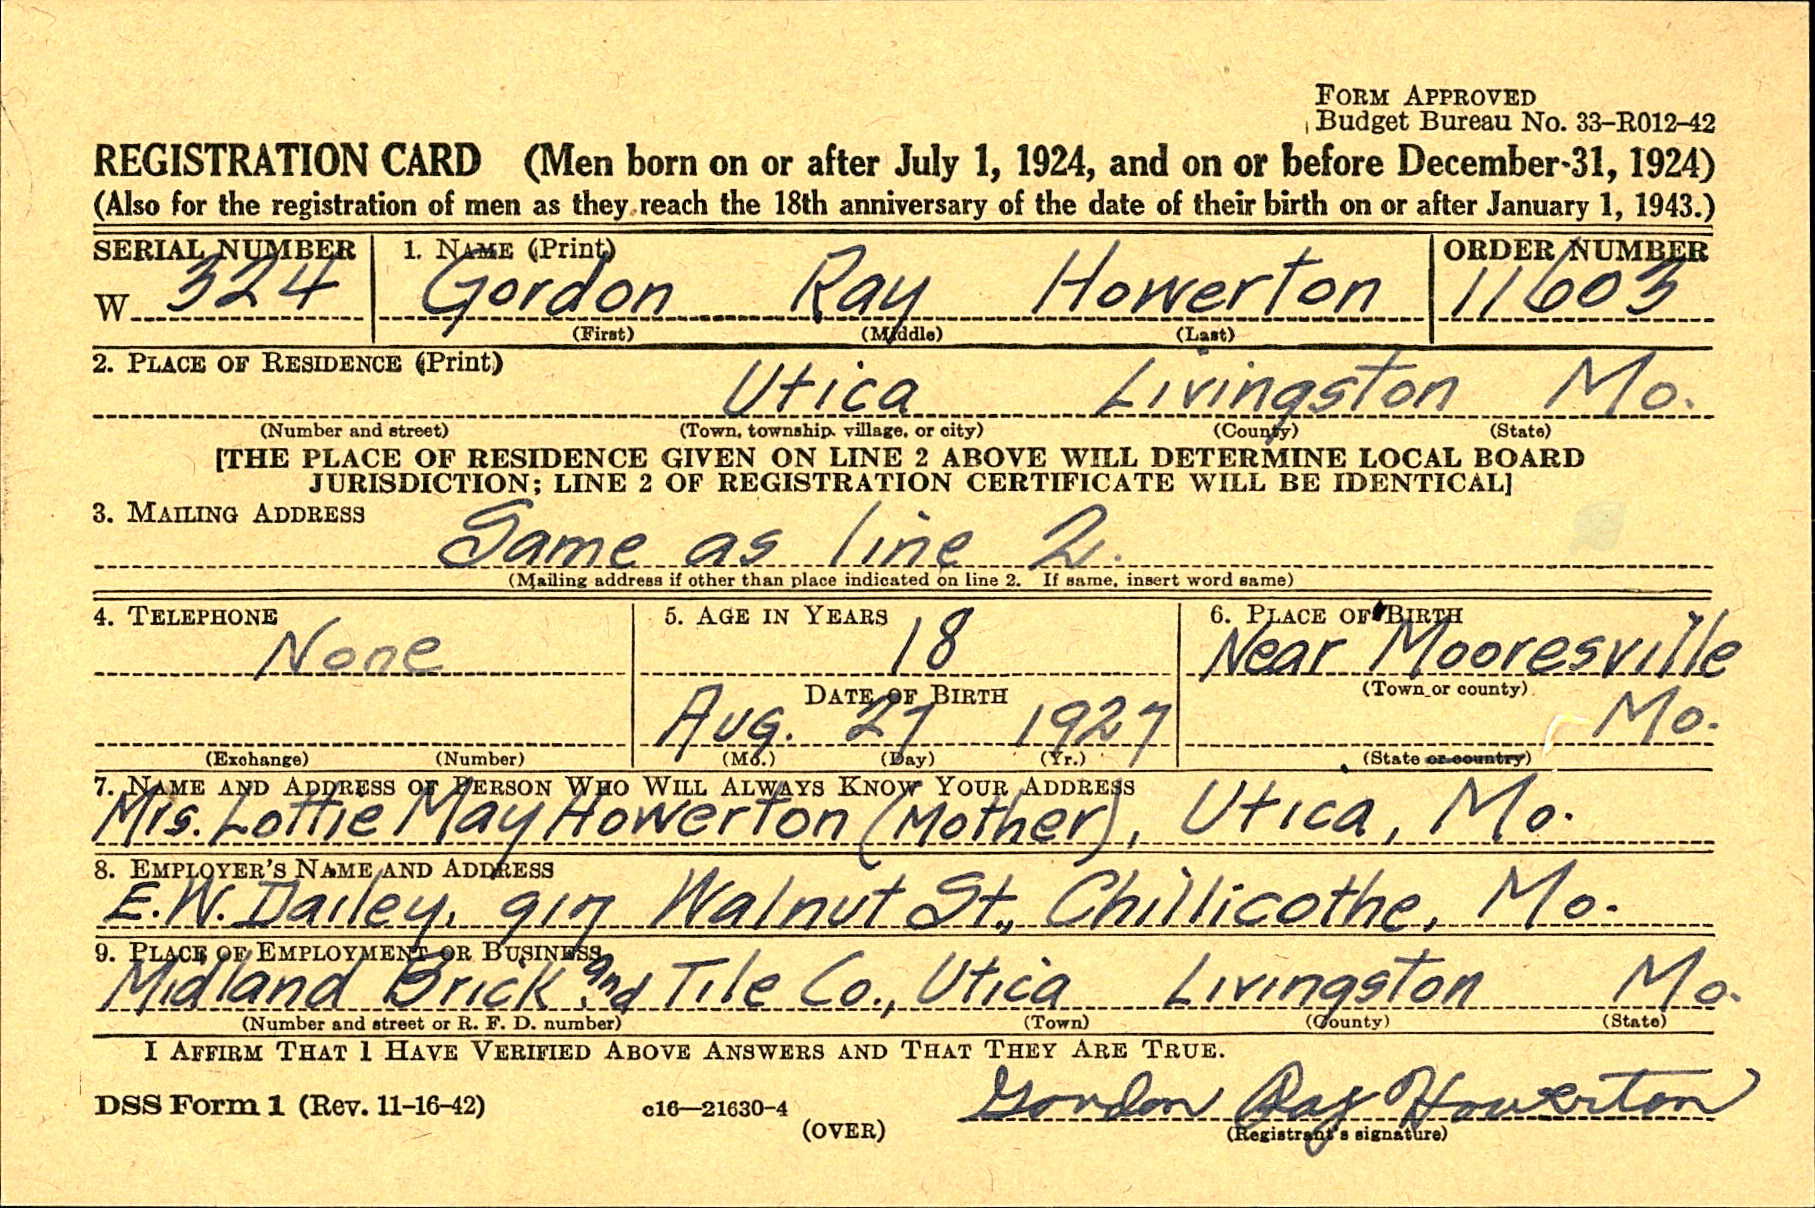 FORM APPROVED
Budget Bureau No. 33-R012-42
REGISTRATION CARD (Men born on or after July 1, 1924, and on or before December 31, 1924)
(Also for the registration of men as they reach the 18th anniversary of the date of their birth on or after January 1, 1943.)
SERIAL NUMBER 1. NAME (Print) ORDER NUMBER
W 324 Gordon Ray Howerton 11603
(First) (Middle) (Last)
2. PLACE OF RESIDENCE (Print)
Utica Livingston Mo.
(Number and street) (Town, township, village, or city) (County) (State)
[THE PLACE OF RESIDENCE GIVEN ON LINE 2 ABOVE WILL DETERMINE LOCAL BOARD
JURISDICTION; LINE 2 OF REGISTRATION CERTIFICATE WILL BE IDENTICAL]
3. MAILING ADDRESS
Same as line 2.
(Mailing address if other than place indicated on line 2. If same, insert word same)
4. TELEPHONE 5. AGE IN YEARS 6. PLACE OF BIRTH
None 18 Near Mooresville
DATE OF BIRTH (Town or county)
Aug. 27 1927 Mo.
(Exchange) (Number) (Mo.) (Day) (Yr.) (State or country)
7. NAME AND ADDRESS OF PERSON WHO WILL ALWAYS KNOW YOUR ADDRESS
Mrs. Lottie May Howerton (Mother), Utica, Mo.
8. EMPLOYER'S NAME AND ADDRESS
E.W. Dailey, 917 Walnut St., Chillicothe, Mo.
9. PLACE OF EMPLOYMENT OR BUSINESS
Midland Brick and Tile Co., Utica Livingston Mo.
(Number and street or R. F. D. number) (Town) (County) (State)
I AFFIRM THAT I HAVE VERIFIED ABOVE ANSWERS AND THAT THEY ARE TRUE.
DSS Form 1 (Rev. 11-16-42) c16—21630-4 Gordon Ray Howerton
(OVER) (Registrant's signature)